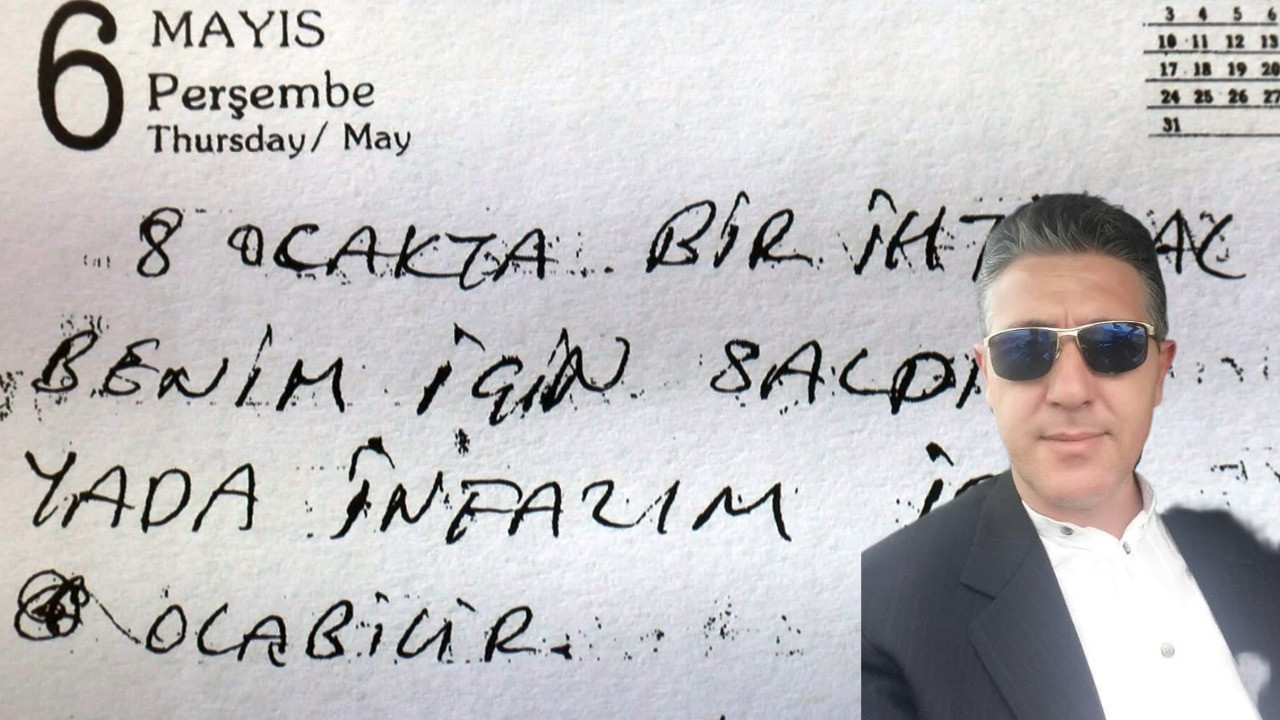 6
MAYIS
Perşembe
Thursday/ May
3 4 5 6
10 11 12 13
17 18 19 20
24 25 26 27
31
8 OCAKTA BİR
BENİM İÇİN
YADA İNFAZIM
OLABİLİR.